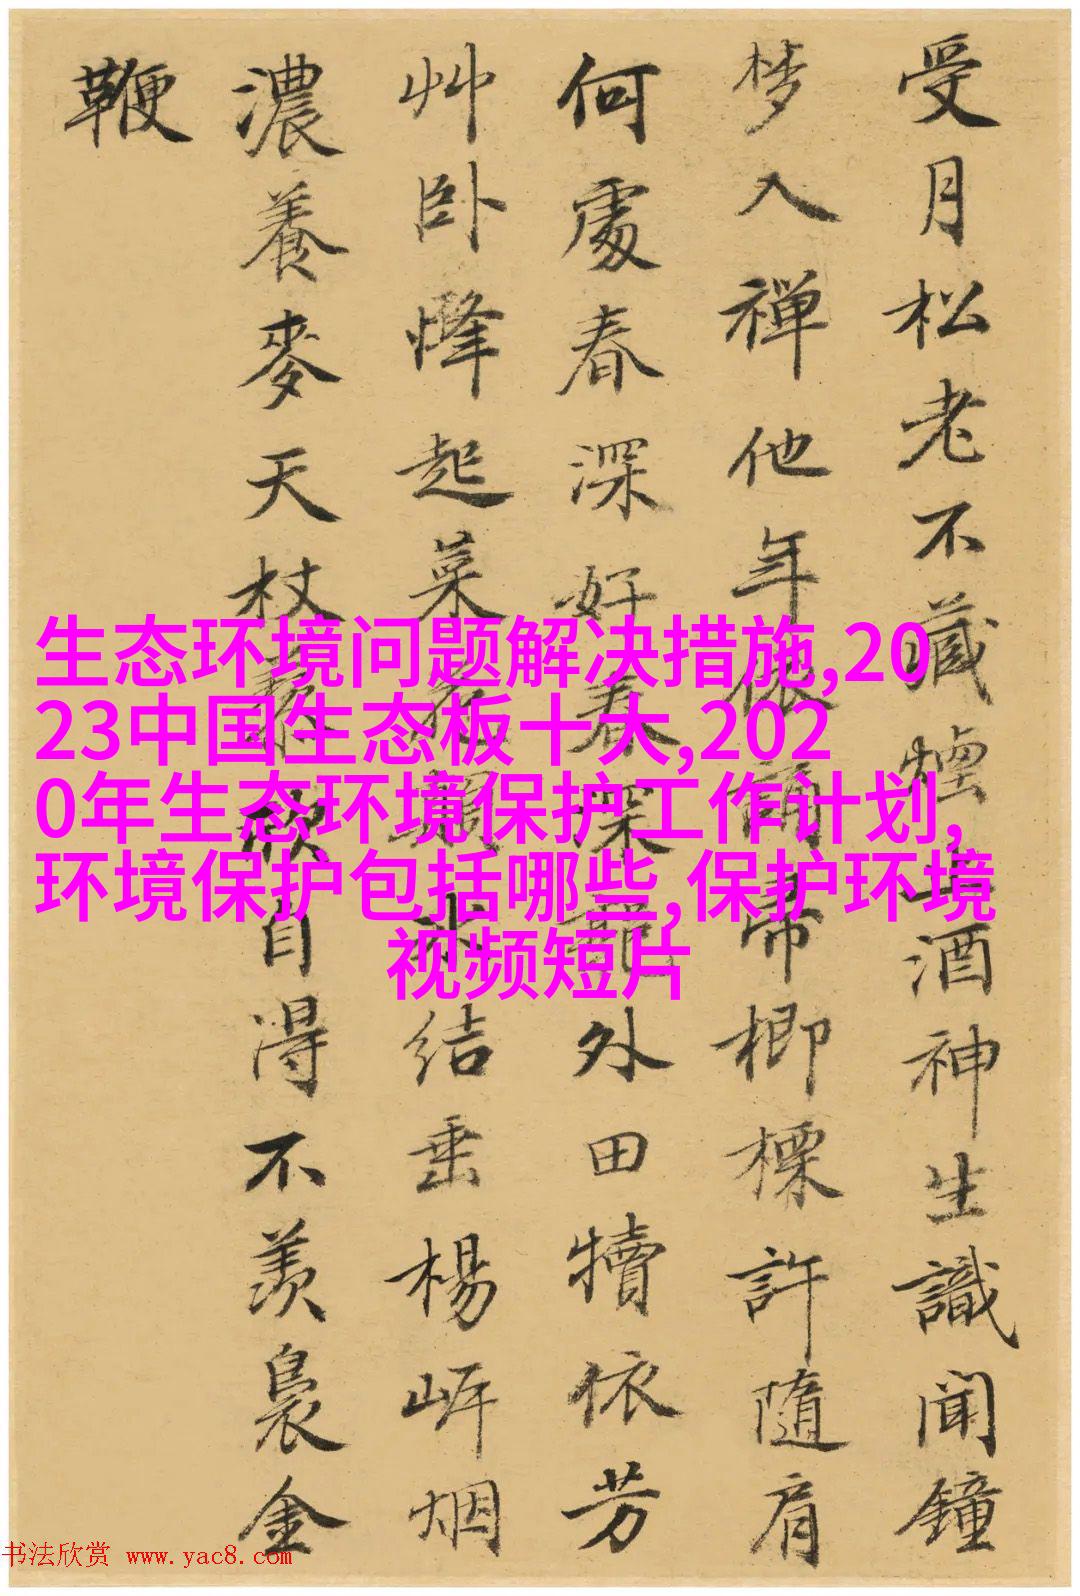 受月松老不藏煙上酒神生識聞鐘
梦入禅他年依誦帚楖檪許隨肩
何處春深好春深部外田犢依芳
艸卧烽起菜結垂楊岓烟
濃養麥天杖欣自淂不羨裊金
鞭
生态环境问题解决措施,20
23中国生态板十大,202
0年生态环境保护工作计划,
环境保护包括哪些,保护环境
视频短片
书法欣赏 www.yac8.com